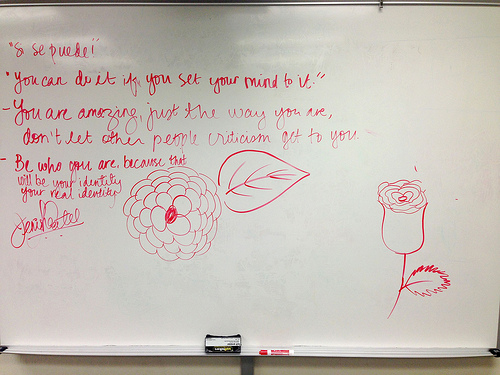 "Si se puede!"
"You can do it if you set your mind to it."
- You are amazing, just the way you are,
don't let other people criticism get to you
- Be who you are, because that
will be your identity
your real identity